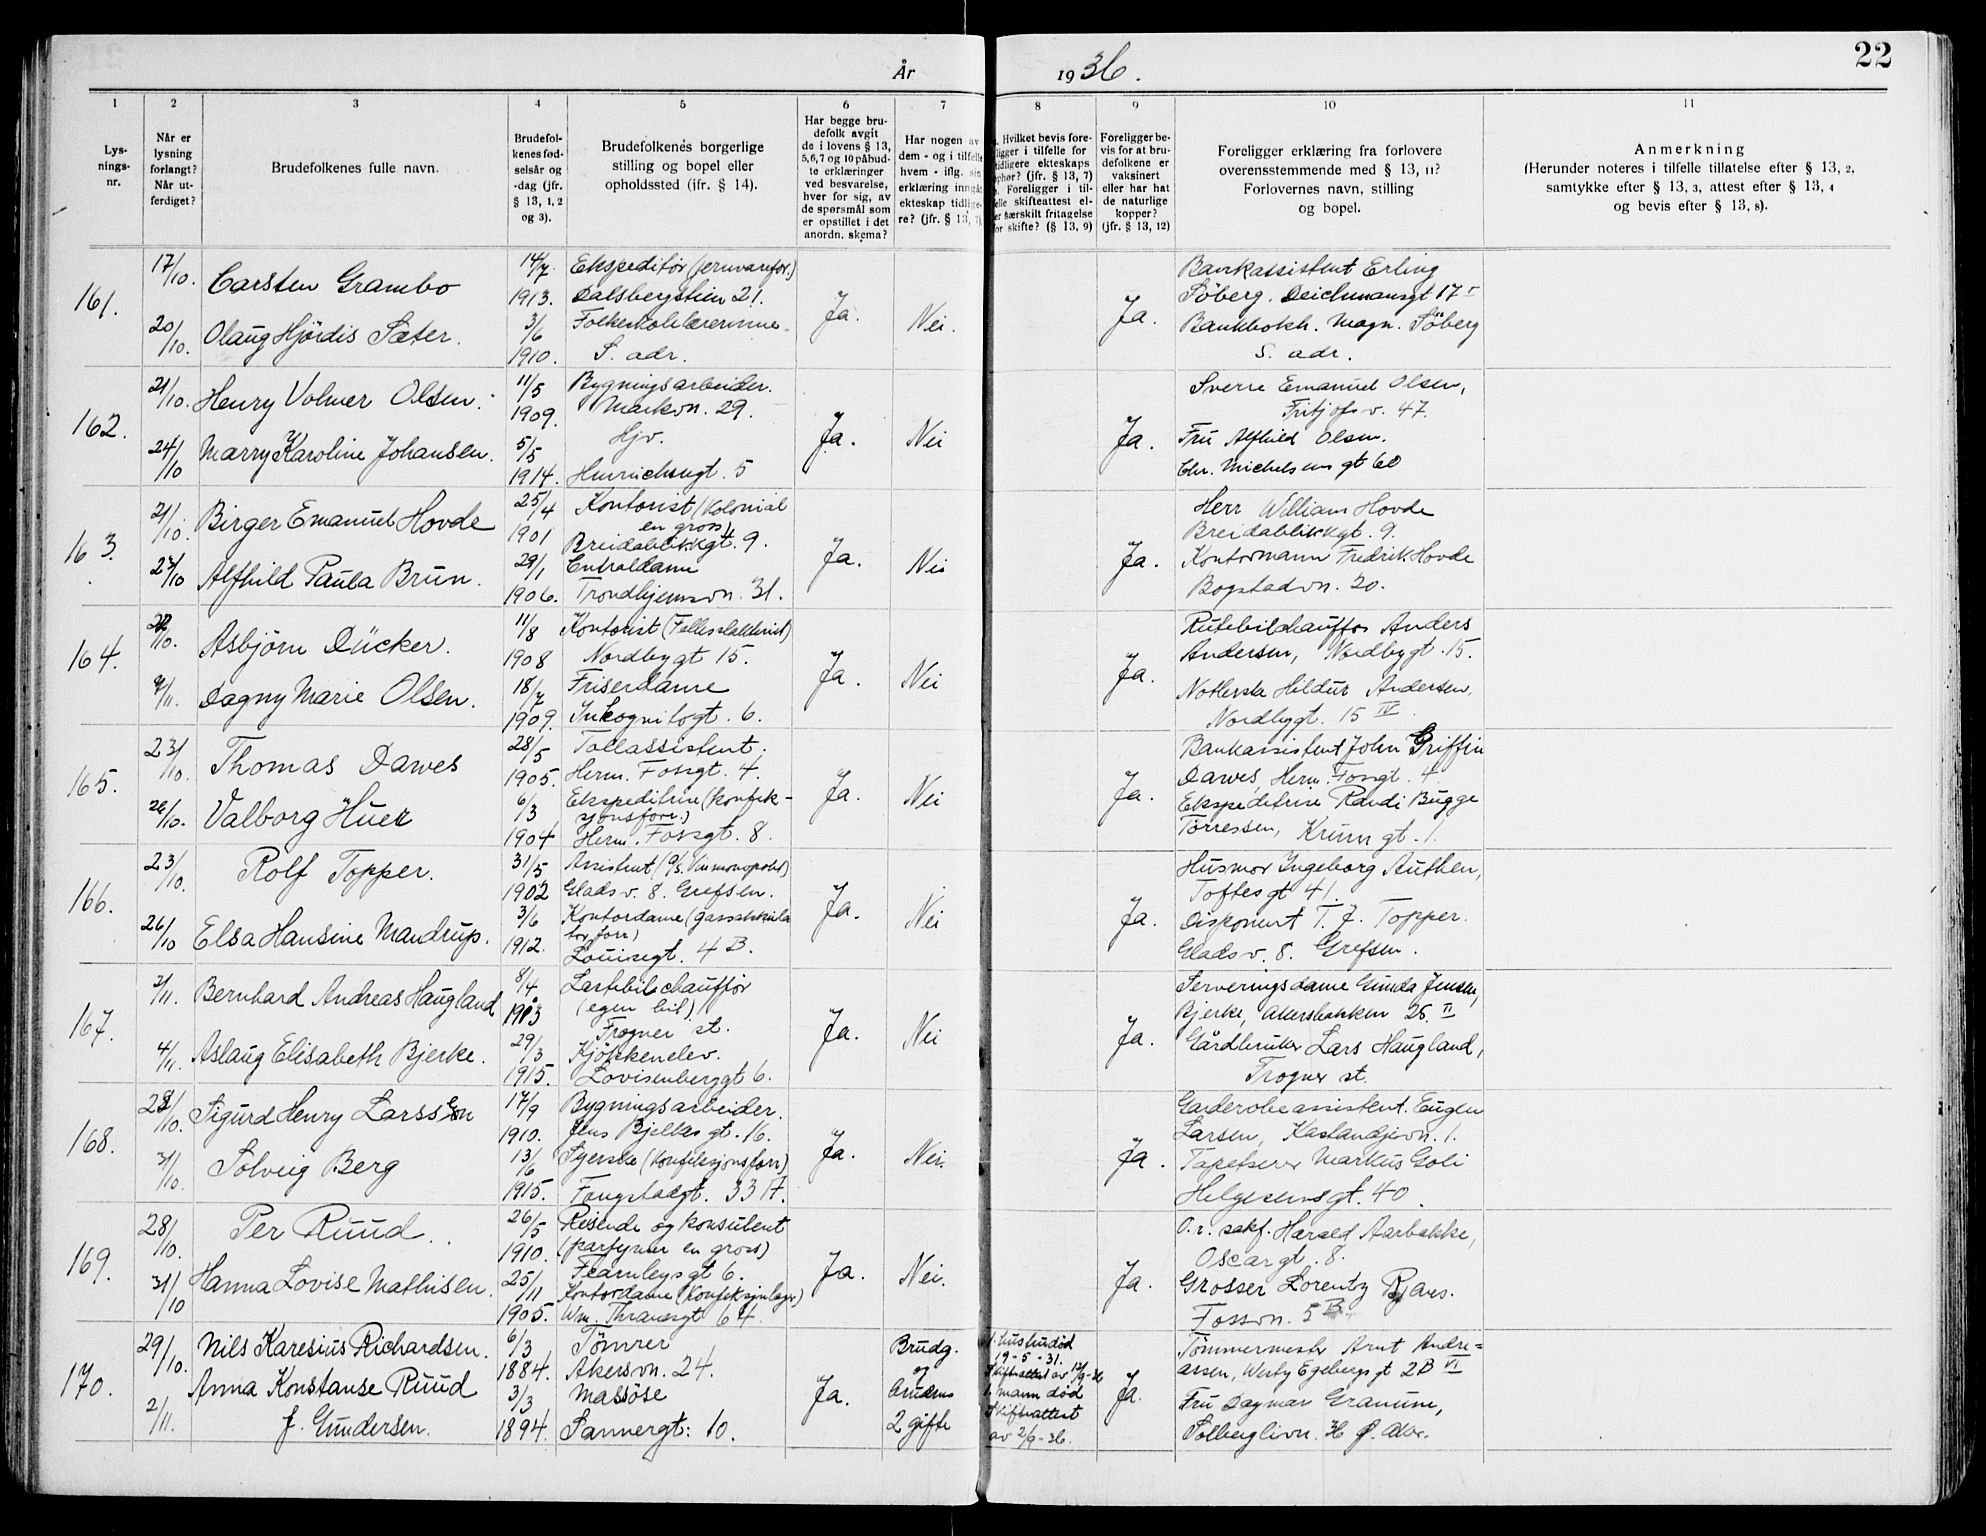 År 1936.
22
1
2
3
4
5
6
7
8
9
10
11
Lys-
nings-
nr.
Når er
lysning
forlangt?
Når ut-
ferdiget?
Brudefolkenes fulle navn.
Brudefol-
kenes fød-
selsår og
-dag (jfr.
§ 13, 1, 2
og 3).
Brudefolkenes borgerlige
stilling og bopel eller
opholdssted (jfr. § 14).
Har begge bru-
defolk avgit
de i lovens § 13,
5,6,7 og 10 påbud-
te erklæringer
ved besvarelse,
hver for sig, av
de spørsmål som
er opstillet i det
anordn. skema?
Har nogen av
dem - og i tilfelle
hvem - iflg. sin
erklæring inngått
ekteskap tidlige-
re? (jfr. § 13, 7)
Hvilket bevis fore-
ligger i tilfelle for
tidligere ekteskaps
ophør? (jfr. § 13, 7)
Foreligger i til-
felle skifteattest el-
ler særskilt fritagelse
for skifte? (§ 13, 9)
Foreligger be-
vis for at bru-
defolkene er
vaksinert
eller har hat
de naturlige
kopper?
(jfr. § 13, 12)
Foreligger erklæring fra forlovere
overensstemmende med § 13, 11?
Forlovernes navn, stilling
og bopel.
Anmerkning
(Herunder noteres i tilfelle tillatelse efter § 13, 2,
samtykke efter § 13, 3, attest efter § 13, 4
og bevis efter § 13, 8).
161.
17/10.
Carsten Grambo
14/7.
1913.
Ekspeditør (jernvarefor.)
Dalsbergstien 21.
20/10.
Olaug Hjördis Sæter.
3/6
1910.
Folkeskolelærerinne
S. adr.
Ja.
Nei.
Ja.
Bankassistent Erling
Söberg. Deichmansgt 17 I
Bankbokh. Magn. Söberg
S. adr.
162.
21/10.
Henry Volmer Olsen.
11/5
1909.
Bygningsarbeider.
Markvn. 29.
24/10
Marry Karoline Johansen.
5/5
1914.
Hjv.
Hinrichsngt. 5
Ja.
Nei
Ja.
Sverre Emanuel Olsen,
Fritjofs v. 47.
Fru Alfhild Olsen.
Chr. Michelsens gt 60
163.
21/10.
Birger Emanuel Hovde
25/4
1901
Kontorist (Kolonial
en gross),
Breidablikkgt. 9.
27/10
Alfhild Paula Brun.
29/1
1906.
Entraldame
Trondhjemsvn. 31.
Ja.
Nei
Ja.
Herr William Hovde
Breidablikkgt. 9.
Kontormann Fredrik Hovde
Bogstadvn. 20.
164.
22/10.
Asbjørn Dücker.
11/8
1908
Kontorist (Fellesslakteriet)
Nordbygt 15.
4/11.
Dagny Marie Olsen.
18/7
1909.
Friserdame
Inkognitogt. 6.
Ja.
Nei
Ja.
Rutebilchauffør Anders
Andersen, Nordbygt. 15.
Hildur Andersen,
Nordbygt. 15 IV
165.
23/10.
Thomas Dawes
28/5
1905.
Tollassistent.
Herm. Fossgt. 4.
26/10.
Valborg Huer
6/3
1904
Ekspeditrise (konfek-
sjonsforr.)
Herm. Fossgt. 8.
Ja.
Nei
Ja.
Bankassistent John Griffin
Dawes, Herm. Fossgt. 4.
Ekspeditrise Randi Bugge
Torressen, Krumgt. 1.
166.
23/10.
Rolf Topper.
31/5
1902
Assistent (A/S. Vinmonopolet)
Glads v. 8. Grefsen.
26/10
Elsa Hansine Mandrup.
3/6
1912.
Kontordame (gassakkula
tor forr)
Louisegt. 4 B.
Ja.
Nei
Ja.
Husmor Ingeborg Authen,
Toftes gt 41.
Disponent T. J. Topper.
Glads v. 8. Grefsen.
167.
3/11.
Bernhard Andreas Haugland
8/4
1903
Lastebilchauffør
(egen bil)
Frogner st.
4/11.
Aslaug Elisabeth Bjerke.
29/3
1915.
Kjøkkenelev.
Lovisenberggt 6.
Ja.
Nei
Ja.
Serveringsdame Gunda Jensen,
Bjerke, Akersbakken 26. II
Gårdbruker Lars Haugland,
Frogner st.
168.
28/10.
Sigurd Henry Larsson
17/9
1910.
Bygningsarbeider.
Jens Bjelkes gt. 16.
31/10.
Solveig Berg
13/6
1915.
Syerske (konfeksjonsforr)
Fougstadgt. 33 A.
Ja.
Nei.
Ja.
Garderobeassistent. Eugen
Larsen, Kastandjevn. 1.
Tapetserer Markus Goli
Helgesens gt. 40.
169.
28/10.
Per Ruud.
26/5
1910.
Reisende og konsulent
(parfymer en gross)
Fearnleys gt 6.
31/10
Hanna Lovise Mathisen.
25/11
1905.
Kontordame (konfeksjonlager)
Wm. Thranesgt 64.
Ja.
Nei.
Ja.
O. r. sakf. Harald Aarbakke,
Oscar gt. 8.
Grosser Lorentz Bjaus.
Fossvn. 5 B.
170.
29/10.
Nils Karesius Richardsen.
6/3
1884.
Tömrer
Akersvn. 24.
2/11.
Anna Konstanse Ruud
f. Gundersen.
3/3
1894.
Massöse
Sannergt: 10.
Ja.
Brudg.
og
bruden
2 gifte
1. hustru död
19-5-31.
Skifteattest av 12/9-36
1. mann död
Skifteattest
av 2/9-36.
Ja.
Tömmermester Arnt Andre-
assen, Westy Egebergs gt 2B VI
Fru Dagmar Granum,
Solberglivn. 36 Ø. Aker.